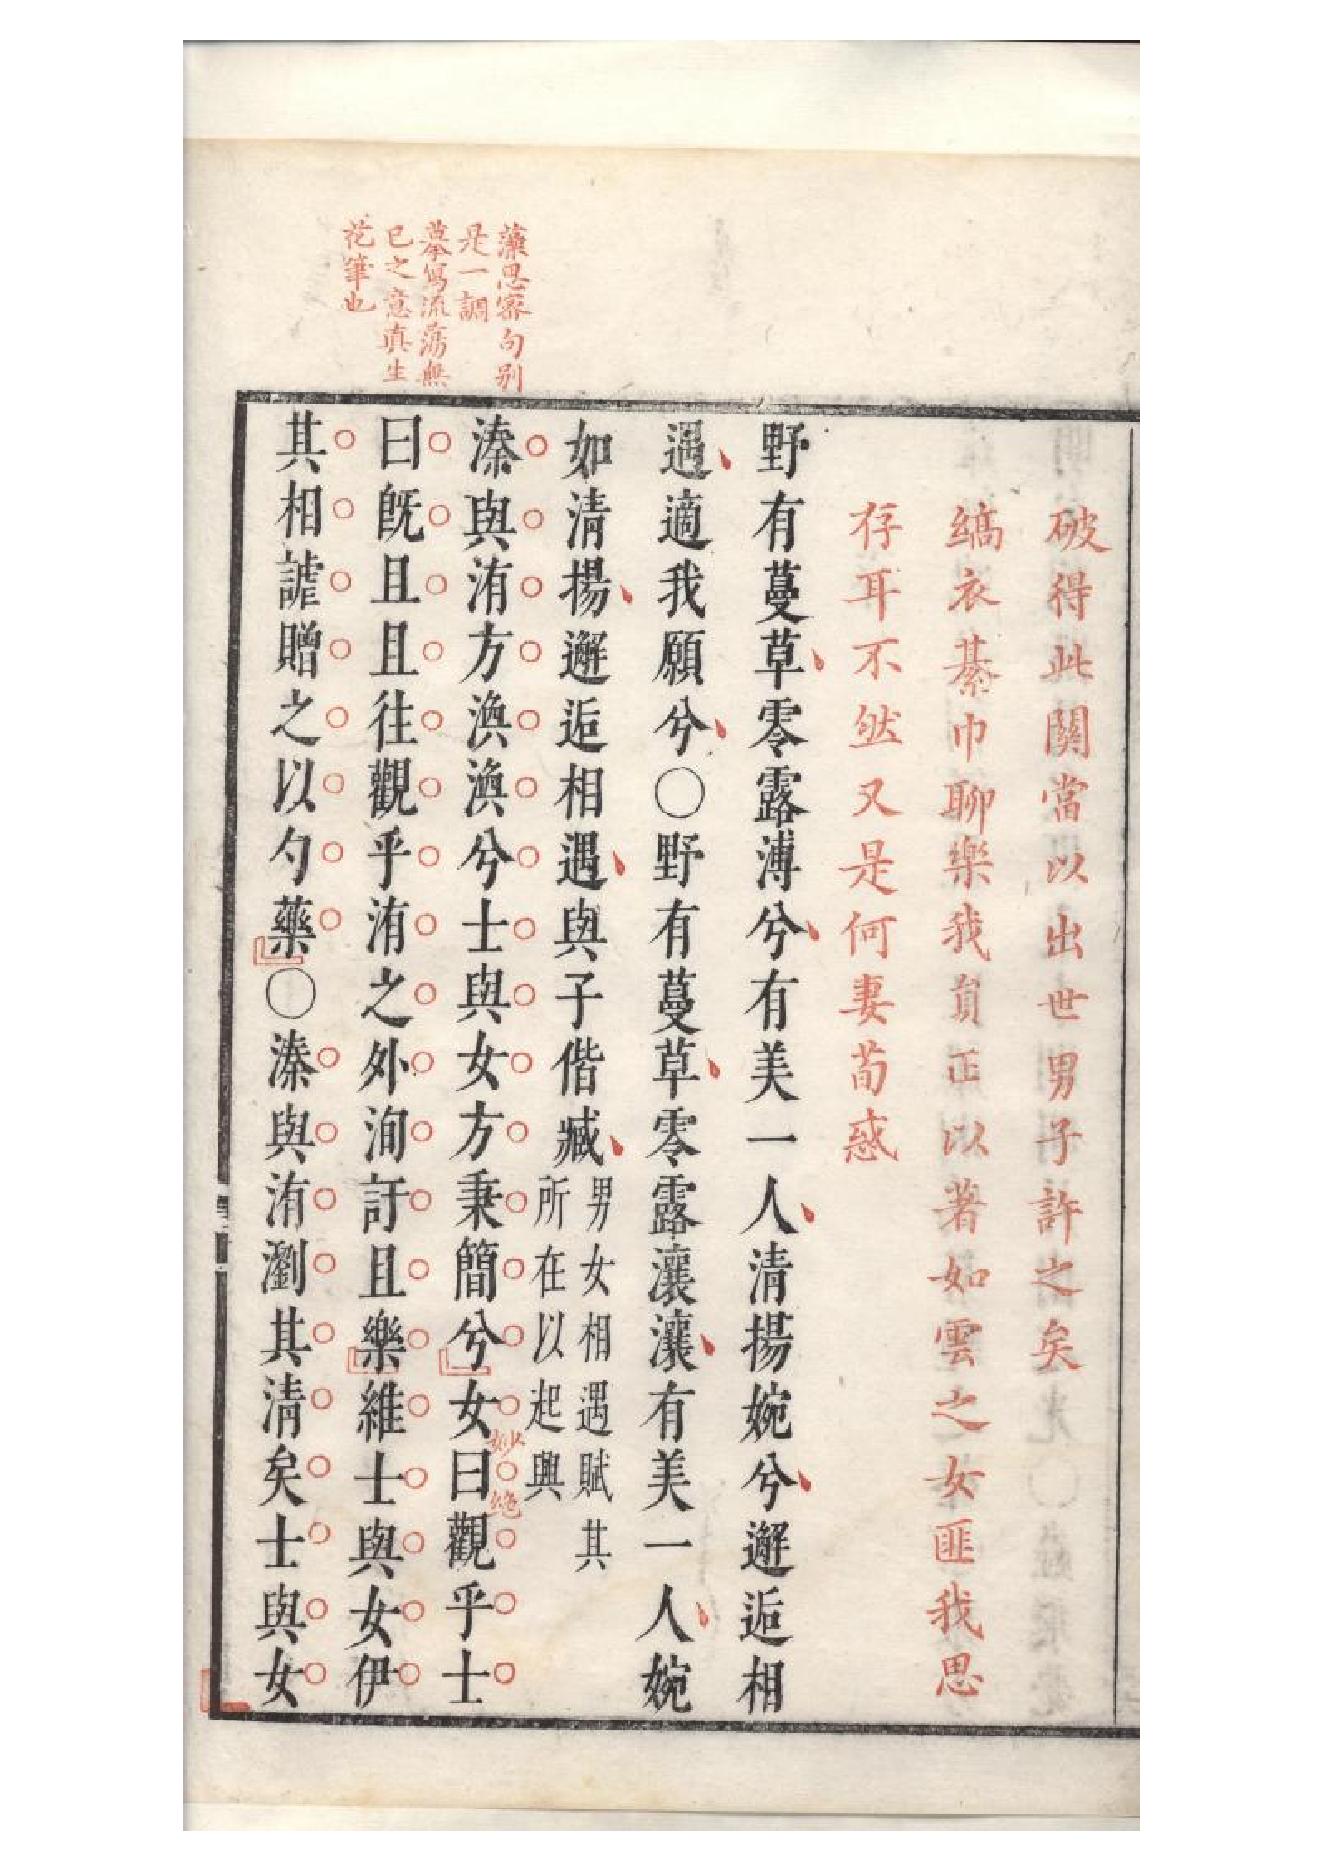 藻思密句别
是一調
摹寫流蕩無
已之意真生
花筆也
破得此關當以出世男子許之矣
縞衣綦巾聊樂我員正以著如雲之女匪我思
存耳不然又是何妻荀惑
野有蔓草零露漙兮有美一人清揚婉兮邂逅相
遇適我願兮○野有蔓草零露瀼瀼有美一人婉
如清揚邂逅相遇與子偕臧
男女相遇賦其
所在以起興
溱與洧方渙渙兮士與女方秉蕳兮女曰觀乎士
妙絶
曰旣且且往觀乎洧之外洵訏且樂維士與女伊
其相謔贈之以勺藥○溱與洧瀏其清矣士與女